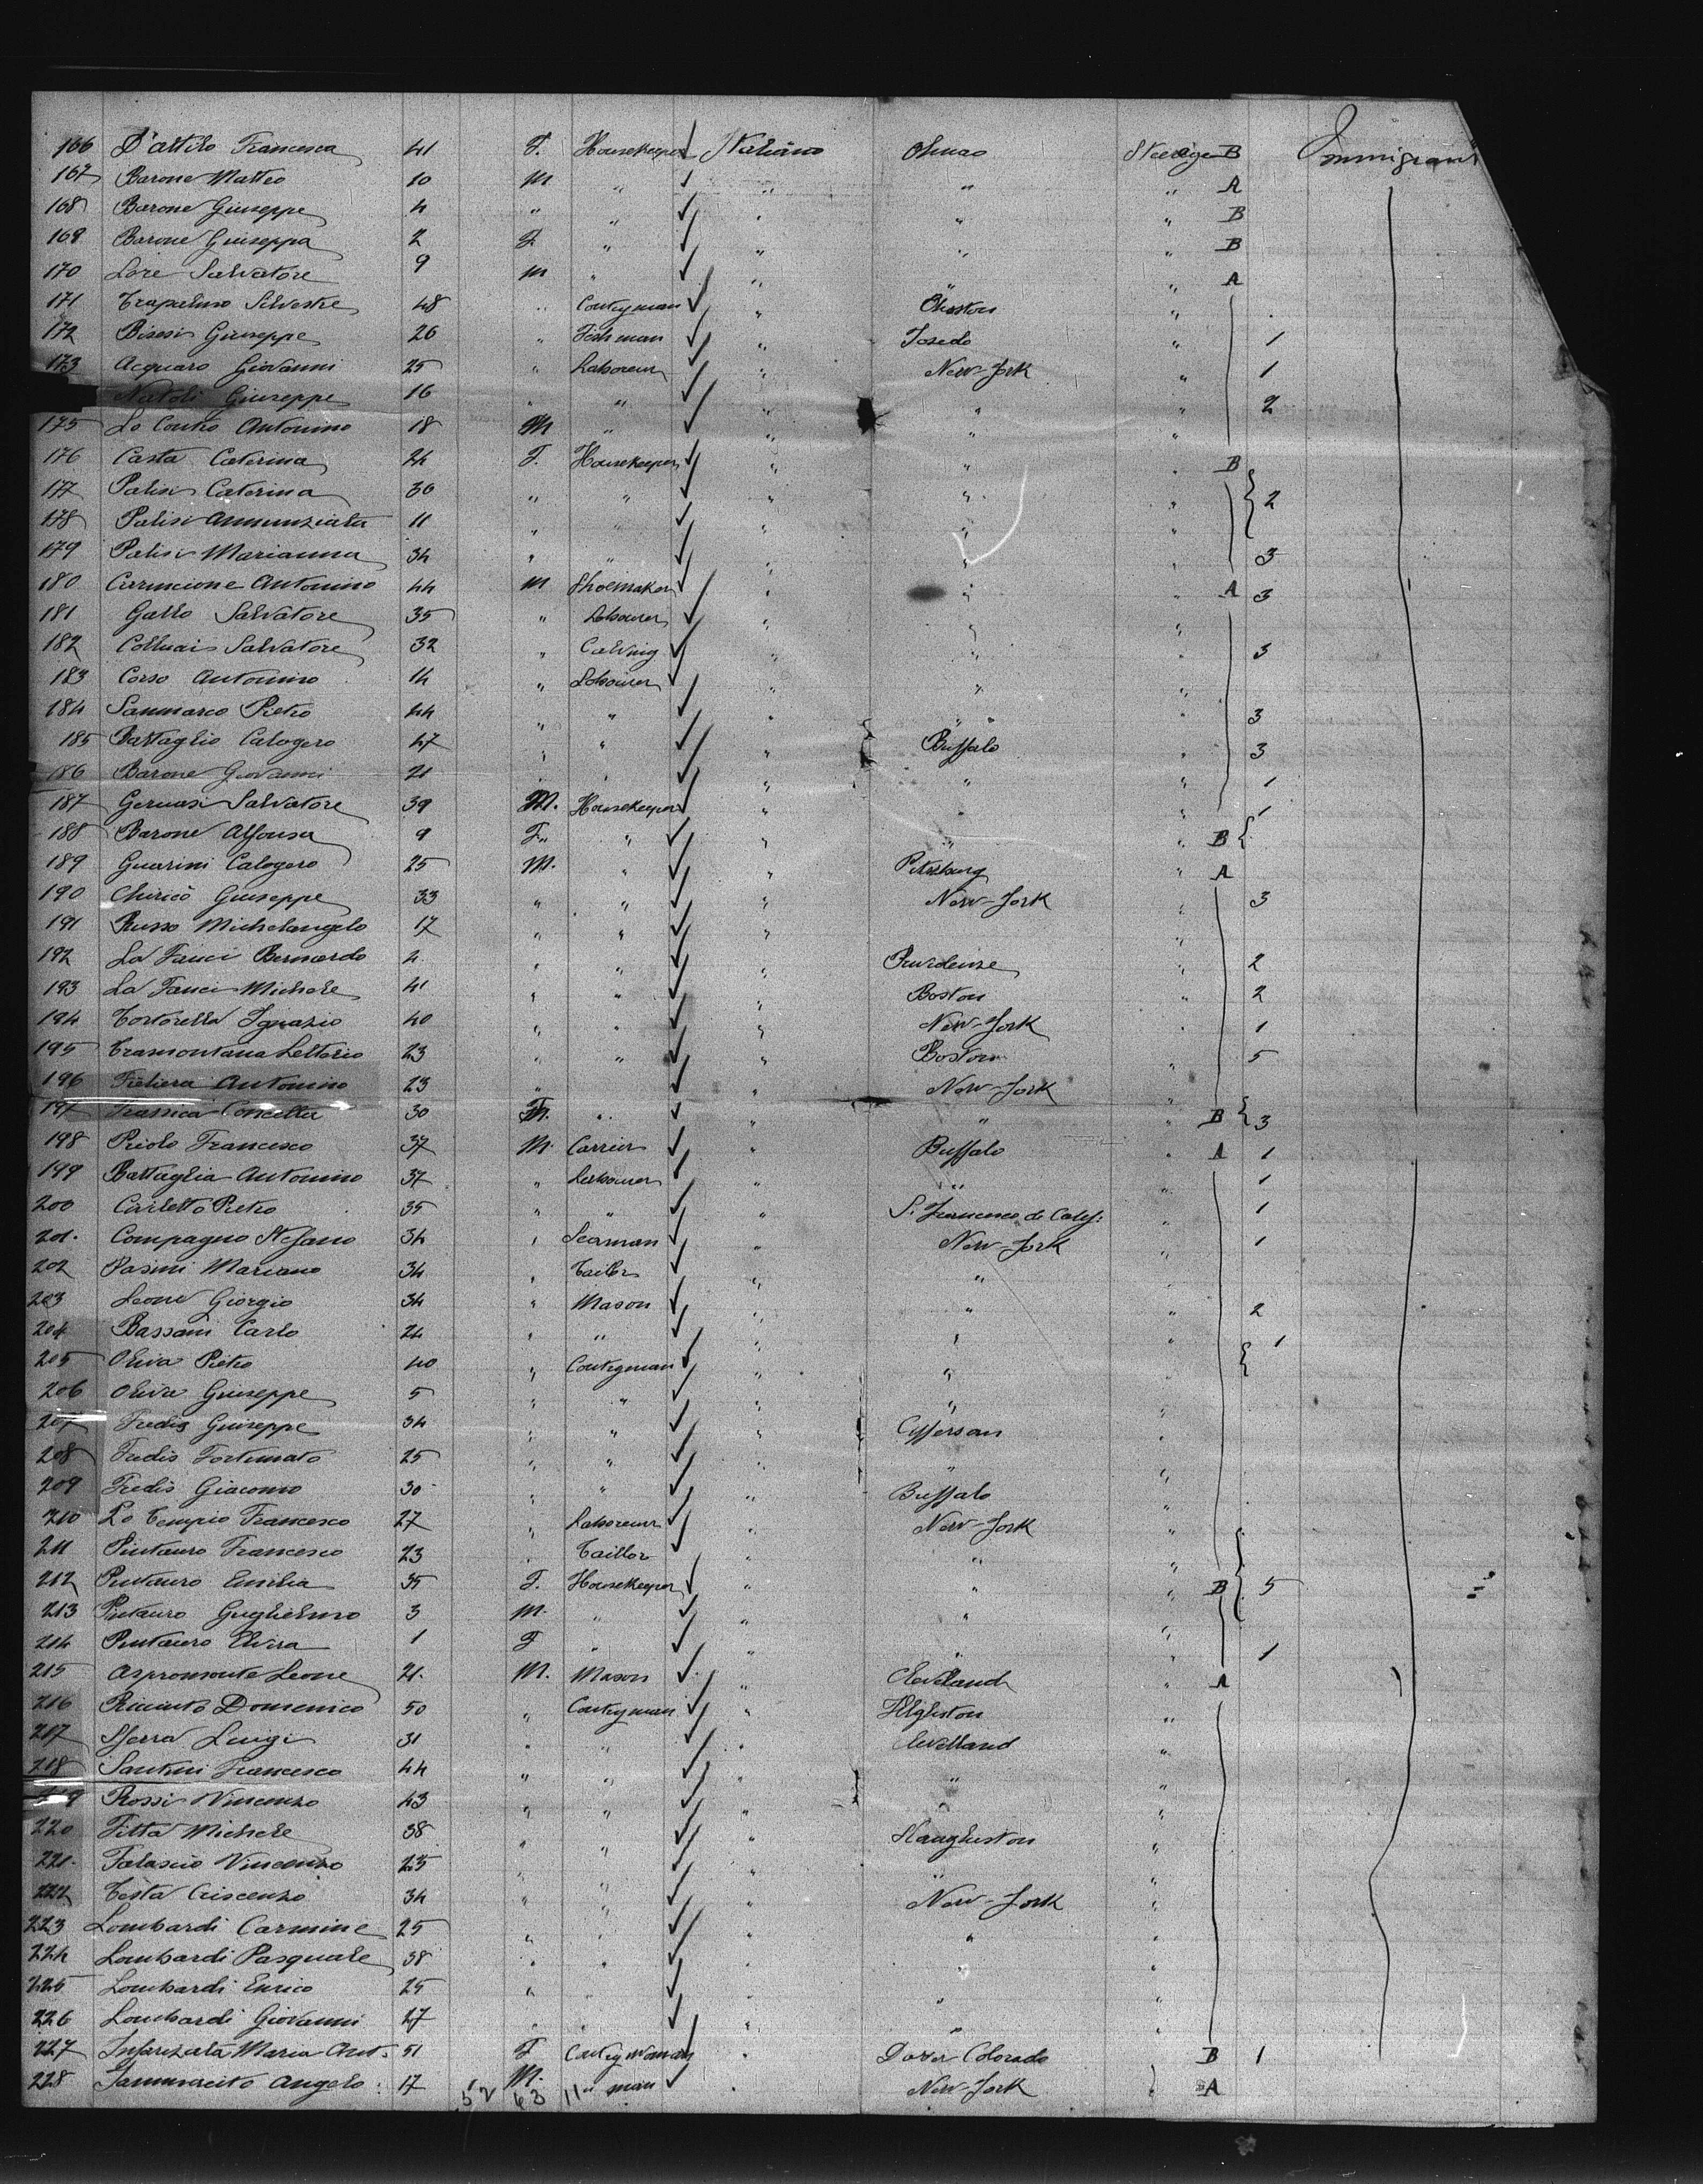 166 D'attilo Francesca 41 F. Housekeeper Italiano Steerage B Immigrant
167 Barone Matteo 10 M " " " " A
168 Barone Giuseppe 4 " " " " " B
169 Barone Giuseppa 2 F " " " " B
170 Lore Salvatore 9 M " " " " A
171 Silvestre 48 " Contryman " "
172 Bisesi Giuseppe 26 " Fishman " " 1
173 Acquaro Giovanni 25 " Laboreur " New-Jork " 1
Natoli Giuseppe 16 " " " " " 2
175 Lo Conti Antonino 18 M " " " "
176 Casta Caterina 24 F. Housekeeper " " " B
177 Palisi Caterina 36 " " " " " 2
178 Palisi Annunziata 11 " " " " "
179 Palisi Marianna 34 " " " " " 3
180 Antonino 44 M Shoemaker " " " A 3
181 Gallo Salvatore 35 " Labourer " " "
182 Salvatore 32 " " " " 3
183 Corso Antonino 14 " Labourer " " "
184 Sanmarco Pietro 44 " " " " " 3
185 Battaglio Calogero 47 " " " Buffalo " 3
186 Barone Giovanni 21 " " " " " 1
187 Gervasi Salvatore 39 M. Housekeeper " " " 1
188 Barone Alfonsa 9 F. " " " " B
189 Guarini Calogero 25 M. " " Pittsburg " A
190 Chiricò Giuseppe 33 " " " New-Jork " 3
191 Russo Michelangelo 17 " " " "
192 La Fauci Bernardo " " " " 2
193 La Fauci Michele 41 " " " Boston " 2
194 Tortorella Ignazio 40 " " " New-Jork " 1
195 Tramontana Letterio 23 " " " Boston " 5
196 Antonino 23 " " New-Jork "
197 Concetta 30 F. " " " " B 3
198 Priolo Francesco 37 M. Carrier " Buffalo " A 1
199 Battaglia Antonino 37 " Labourer " " 1
200 Carletto Pietro 35 " " " S. Francesco de Calif: " 1
201. Compagno Stefano 34 " Seaman " New-Jork " 1
202 Pasini Mariano 34 " Tailor " " "
203 Leone Giorgio 34 " Mason " " 2
204 Bassani Carlo 24 " " " " " 1
205 Oliva Pietro 40 " Contryman " "
206 Oliva Giuseppe 5 " " " " "
207 Giuseppe 34 " " " "
208 Fortunato 25 " " " "
209 Giacomo 30 " " " Buffalo "
210 Lo Tempio Francesco 27 " Laboreur New-Jork "
211 Pintauro Francesco 23 " Taillor " " "
212 Pintauro Emilia 35 F. Housekeeper " " " B 5
213 Pintauro Guglielmo 3 M. " " " "
214 Pintauro Elvira 1 F " " " 1
215 Aspromonte Leone 21. M. Mason " Cleveland " A
216 Domenico 50 " Contryman " "
217 Sferra Luigi 31 " " " Clevelland "
218 Santini Francesco 44 " " " " "
219 Rossi Vincenzo 43 " " " " "
220 Fitta Michele 38 " " " "
221. Falascio Vincenzo 25 " " " " "
222 Testa Criscenzo 34 " " " New-Jork "
223 Lombardi Carmine 25 " " " " "
224 Lombardi Pasquale 38 " " " " "
225 Lombardi Enrico 25 " " " " "
226 Lombardi Giovanni 27 " " " " "
227 Maria Ant. 51 F Contrywoman " Colorado B 1
228 Angelo 17 M. " man " New-Jork A
52 63 11